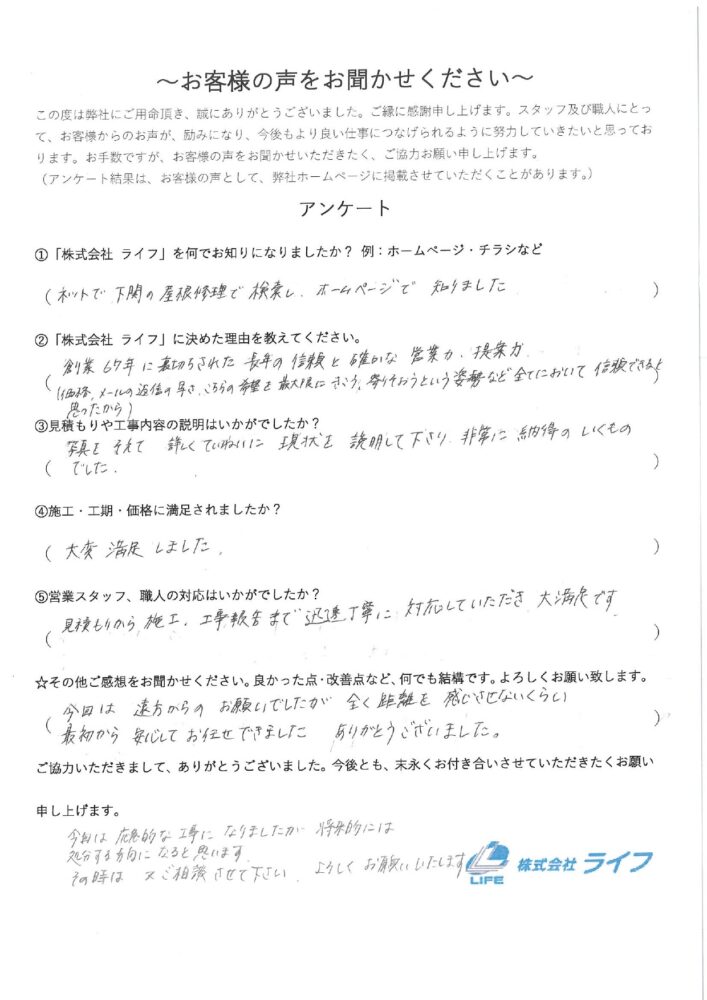 ～お客様の声をお聞かせください～
この度は弊社にご用命頂き、誠にありがとうございました。ご縁に感謝申し上げます。スタッフ及び職人にとっ
て、お客様からのお声が、励みになり、今後もより良い仕事につなげられるように努力していきたいと思ってお
ります。お手数ですが、お客様の声をお聞かせいただきたく、ご協力お願い申し上げます。
（アンケート結果は、お客様の声として、弊社ホームページに掲載させていただくことがあります。）
アンケート
①「株式会社 ライフ」を何でお知りになりましたか？ 例：ホームページ・チラシなど
（ネットで 下関の屋根修理で 検索し、ホームページで 知りました ）
②「株式会社 ライフ」に決めた理由を教えてください。
創業 67年に裏切ちされた 長年の信頼と 確かな 営業力、提案力
（（価格、メールの返信の早さ、こちらの希望を最大限にきこう、寄りそおうという姿勢など全てにおいて 信頼できると
思ったから）
③見積もりや工事内容の説明はいかがでしたか？
写真を そえて 詳しくていねいに 現状を 説明して下さり、非常に 納得の いくもの
（ でした。 ）
④施工・工期・価格に満足されましたか？
（ 大変 満足 しました。 ）
⑤営業スタッフ、職人の対応はいかがでしたか？
見積もりから 施工、工事報告まで 迅速丁寧に 対応していただき 大満足です
（ ）
☆その他ご感想をお聞かせください。良かった点・改善点など、何でも結構です。よろしくお願い致します。
（ 今回は 遠方からの お願いでしたが 全く距離を 感じさせないくらい
最初から 安心して お任せできました ありがとうございました。 ）
ご協力いただきまして、ありがとうございました。今後とも、末永くお付き合いさせていただきたくお願い
申し上げます。
今回は 応急的な 工事に なりましたが 将来的には
処分する方向になると思います
その時は 又ご相談 させて下さい。 よろしく お願いいたします
LIFE 株式会社 ライフ